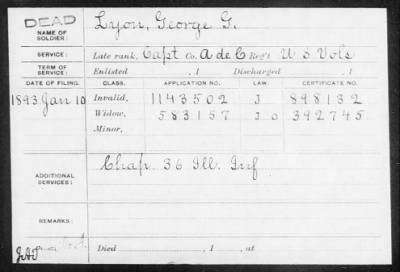 DEAD
NAME OF SOLDIER: Lyon, George G.
SERVICE: Late rank, Capt Co. A de C Reg't U S Vols
TERM OF SERVICE: Enlisted , 1 Discharged , 1
DATE OF FILING. CLASS. APPLICATION NO. LAW. CERTIFICATE NO.
1893 Jan 10 Invalid, 1143502 J 898132
Widow, 583157 J O 392745
Minor,
ADDITIONAL SERVICES: Chap. 36 Ill. Inf
REMARKS:
Died , 1 , at